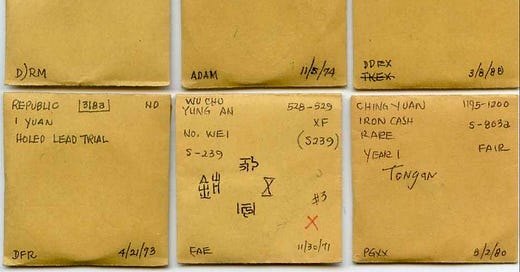 D)RM
ADAM 11/5/74
DDEX
TKEX
REPUBLIC 3183 ND
1 YUAN
HOLED LEAD TRIAL
DFR 4/21/73
WU CHU 528-529
YUNG AN XF
NO. WEI (S239)
S-239
#3
X
EAE 11/30/71
CHING YUAN 1195-1200
IRON CASH S-803a
RARE FAIR
YEAR 1
Tongan
PGXX 3/2/80